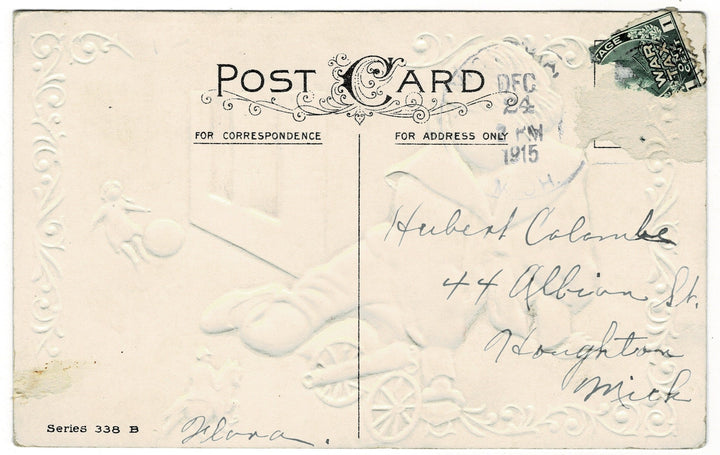 POST CARD
FOR CORRESPONDENCE
FOR ADDRESS ONLY
DEC
24
PM
1915
WAR
TAX
1
Hubert Colombe
44 Albion St.
Houghton
Mich
Series 338 B
Flora.